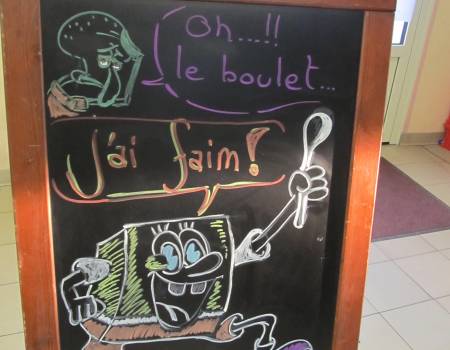 Oh...!!
le boulet...
J'ai faim!